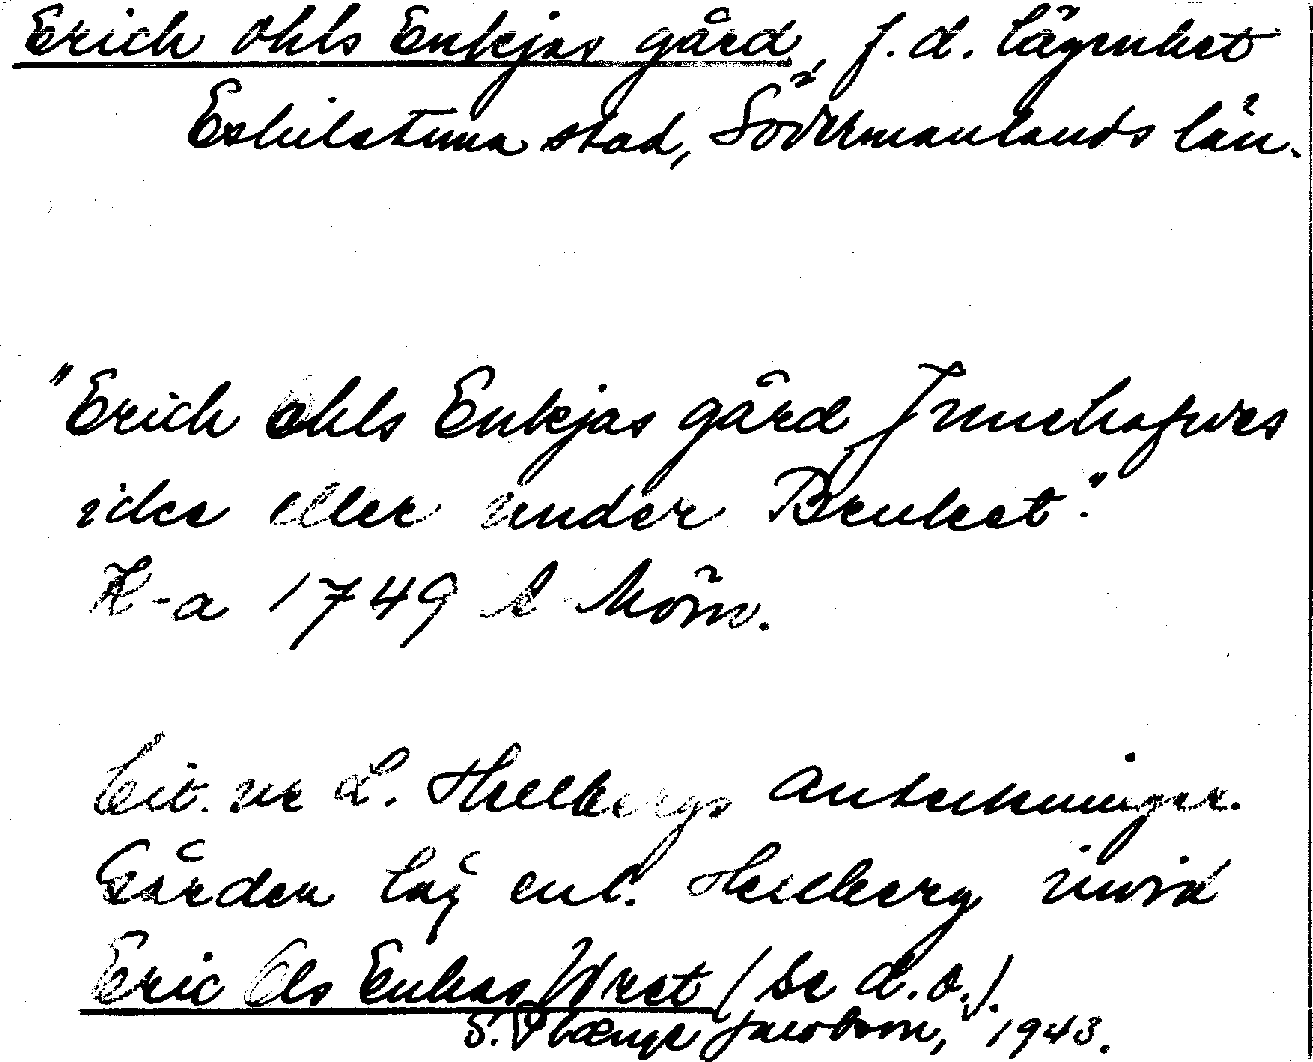 Erich Ohls Enkjas gård, f.d. lägenhet
Eskilstuna stad, Södermanlands län.
"Erich Ohls Enkjas gård Innehafwes
icke eller under Bruket".
K-a 1749 L Mörn.
Cit. ur L. Hellbergs anteckningar.
Gården låg enl. Hellberg invid
Eric Ols Enkas Wret (Se d.o.).
S. Jacobson, 1943.